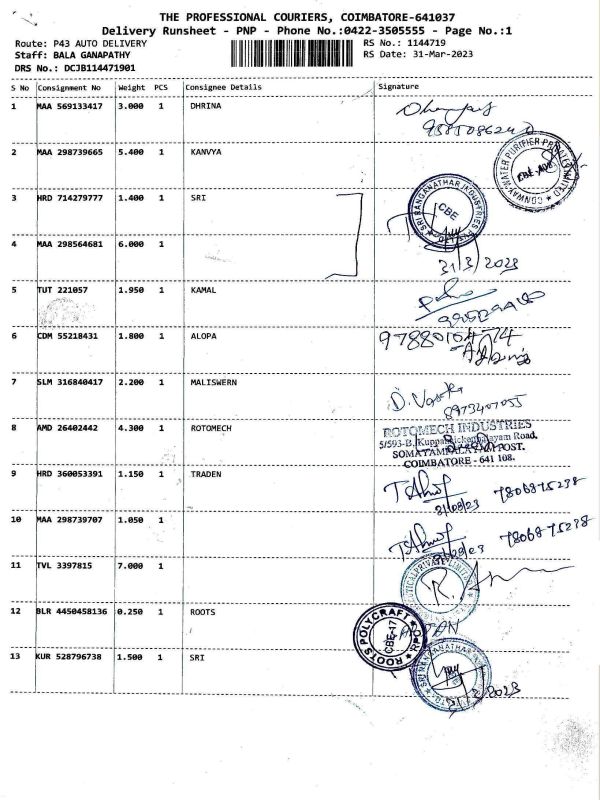 THE PROFESSIONAL COURIERS, COIMBATORE-641037
Delivery Runsheet - PNP - Phone No.:0422-3505555 - Page No.:1
Route: P43 AUTO DELIVERY
RS No.: 1144719
Staff: BALA GANAPATHY
RS Date: 31-Mar-2023
DRS No.: DCJB114471901
S No Consignment No Weight PCS Consignee Details Signature
1 MAA 569133417 3.000 1 DHRINA
2 MAA 298739665 5.400 1 KANVYA
CONWAY WATER PURIFIER PRIVATE LIMITED
3 HRD 714279777 1.400 1 SRI
SRI RANGANATHAR INDUSTRIES PVT LTD
CBE
4 MAA 298564681 6.000 1
31/3/2023
5 TUT 221057 1.950 1 KAMAL
6 CDM 55218431 1.800 1 ALOPA
7 SLM 316840417 2.200 1 MALISWERN
8973407055
8 AMD 26402442 4.300 1 ROTOMECH
ROTOMECH INDUSTRIES
SOMAYAMPALAYAM POST.
COIMBATORE - 641 108.
9 HRD 360053391 1.150 1 TRADEN
7806875238
31/03/23
10 MAA 298739707 1.050 1
7806875238
11 TVL 3397815 7.000 1
12 BLR 4450458136 0.250 1 ROOTS
ROOTS POLYCRAFT
CBE-17
13 KUR 528796738 1.500 1 SRI